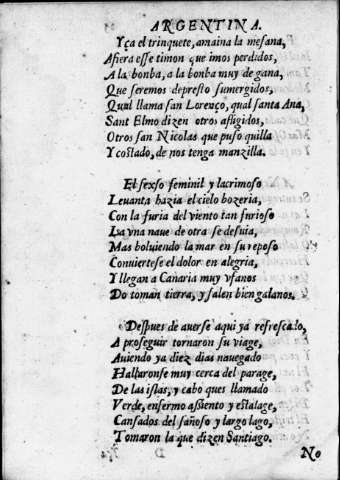 ARGENTINA.
Yça el trinquete, amaina la mesana,
Afierra esse timon que imos perdidos,
A la bonba, a la bonba muy de gana,
Que seremos depresto sumergidos,
Qual llama san Lorenço, qual santa Ana,
Sant Elmo dizen otros afligidos,
Otros san Nicolas que puso quilla
Y costado, de nos tenga manzilla.
El sexso feminil y lacrimoso
Leuanta hazia el cielo bozeria,
Con la furia del viento tan furioso
La vna naue de otra se desuia,
Mas boluiendo la mar en su reposo
Conuiertese el dolor en alegria,
Y llegan a Canaria muy vfanos
Do toman tierra, y salen bien galanos.
Despues de auerse aqui ya refrescado,
A proseguir tornaron su viage,
Auiendo ya diez dias nauegado
Hallaronse muy cerca del parage,
De las islas, y cabo ques llamado
Verde, enfermo assiento y estalage,
Cansados del sañoso y largo lago,
Tomaron la que dizen Santiago.
No